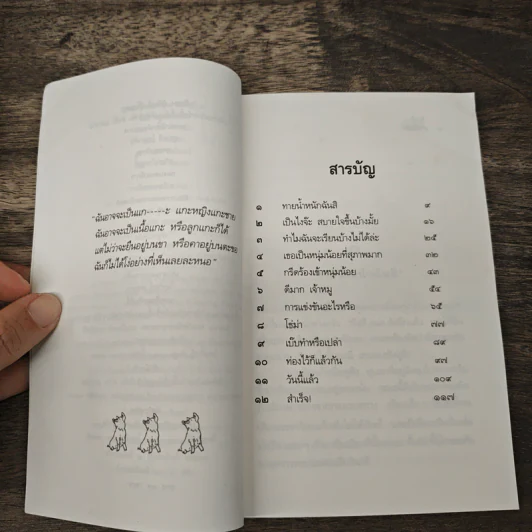 "ฉันอาจจะเป็นแก-----ะ แกะหญิงแกะชาย
ฉันอาจจะเป็นเนื้อแกะ หรือลูกแกะก็ได้
แต่ไม่ว่าจะยืนอยู่บนขา หรือคาอยู่บนตะขอ
ฉันก็ไม่ได้โง่อย่างที่เห็นเลยละหนอ"
สารบัญ
๑ ทายน้ำหนักฉันสิ ๙
๒ เป็นไงจ๊ะ สบายใจขึ้นบ้างมั้ย ๑๖
๓ ทำไมฉันจะเรียนบ้างไม่ได้ล่ะ ๒๕
๔ เธอเป็นหนุ่มน้อยที่สุภาพมาก ๓๒
๕ กรีดร้องเข้าหนุ่มน้อย ๔๓
๖ ดีมาก เจ้าหมู ๕๔
๗ การแข่งขันอะไรหรือ ๖๕
๘ โธ่ม่า ๗๗
๙ เบ๊บทำหรือเปล่า ๘๙
๑๐ ท่องไว้ก็แล้วกัน ๙๗
๑๑ วันนี้แล้ว ๑๐๙
๑๒ สำเร็จ! ๑๑๗